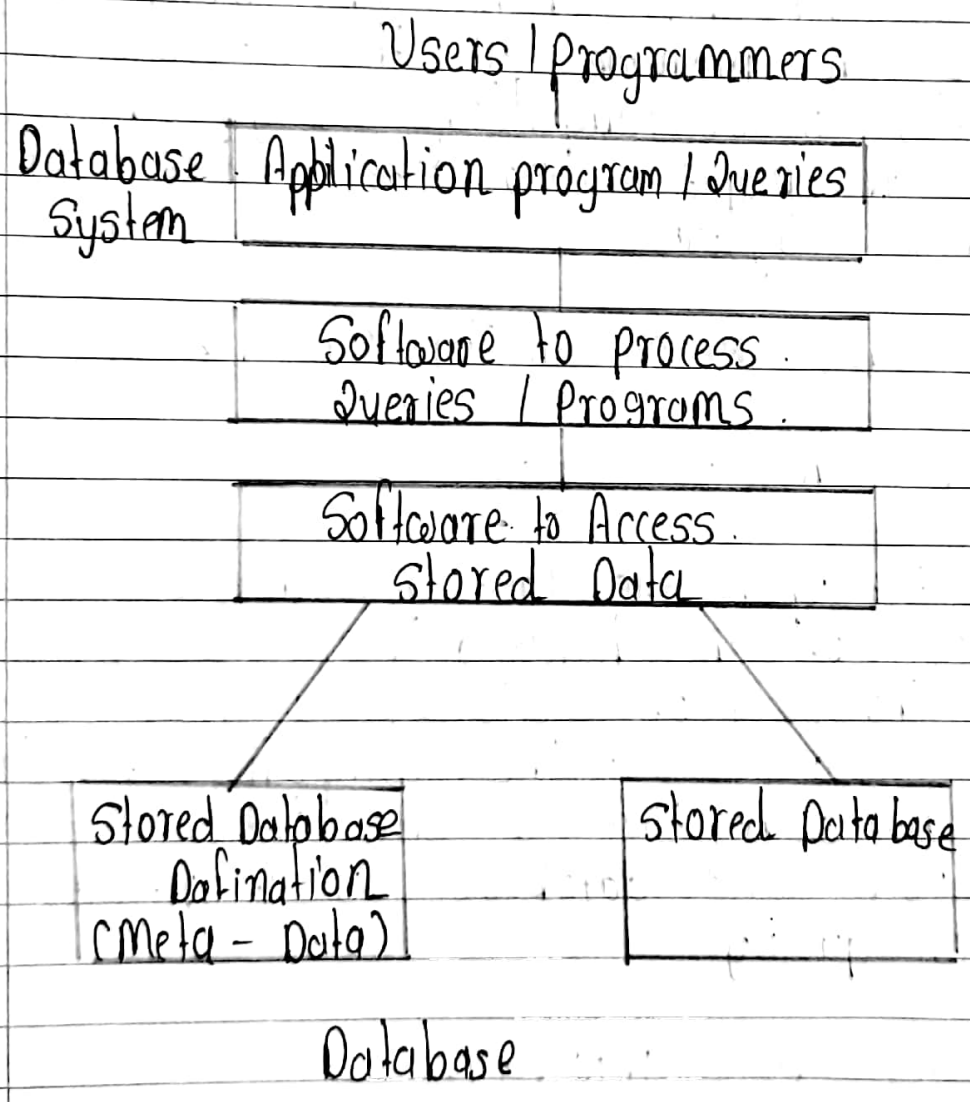 Users / Programmers
Database
System
Application program / Queries
Software to process
Queries / Programs.
Software to Access
Stored Data
Stored Database
Dafination
(Meta - Data)
Stored Database
Database